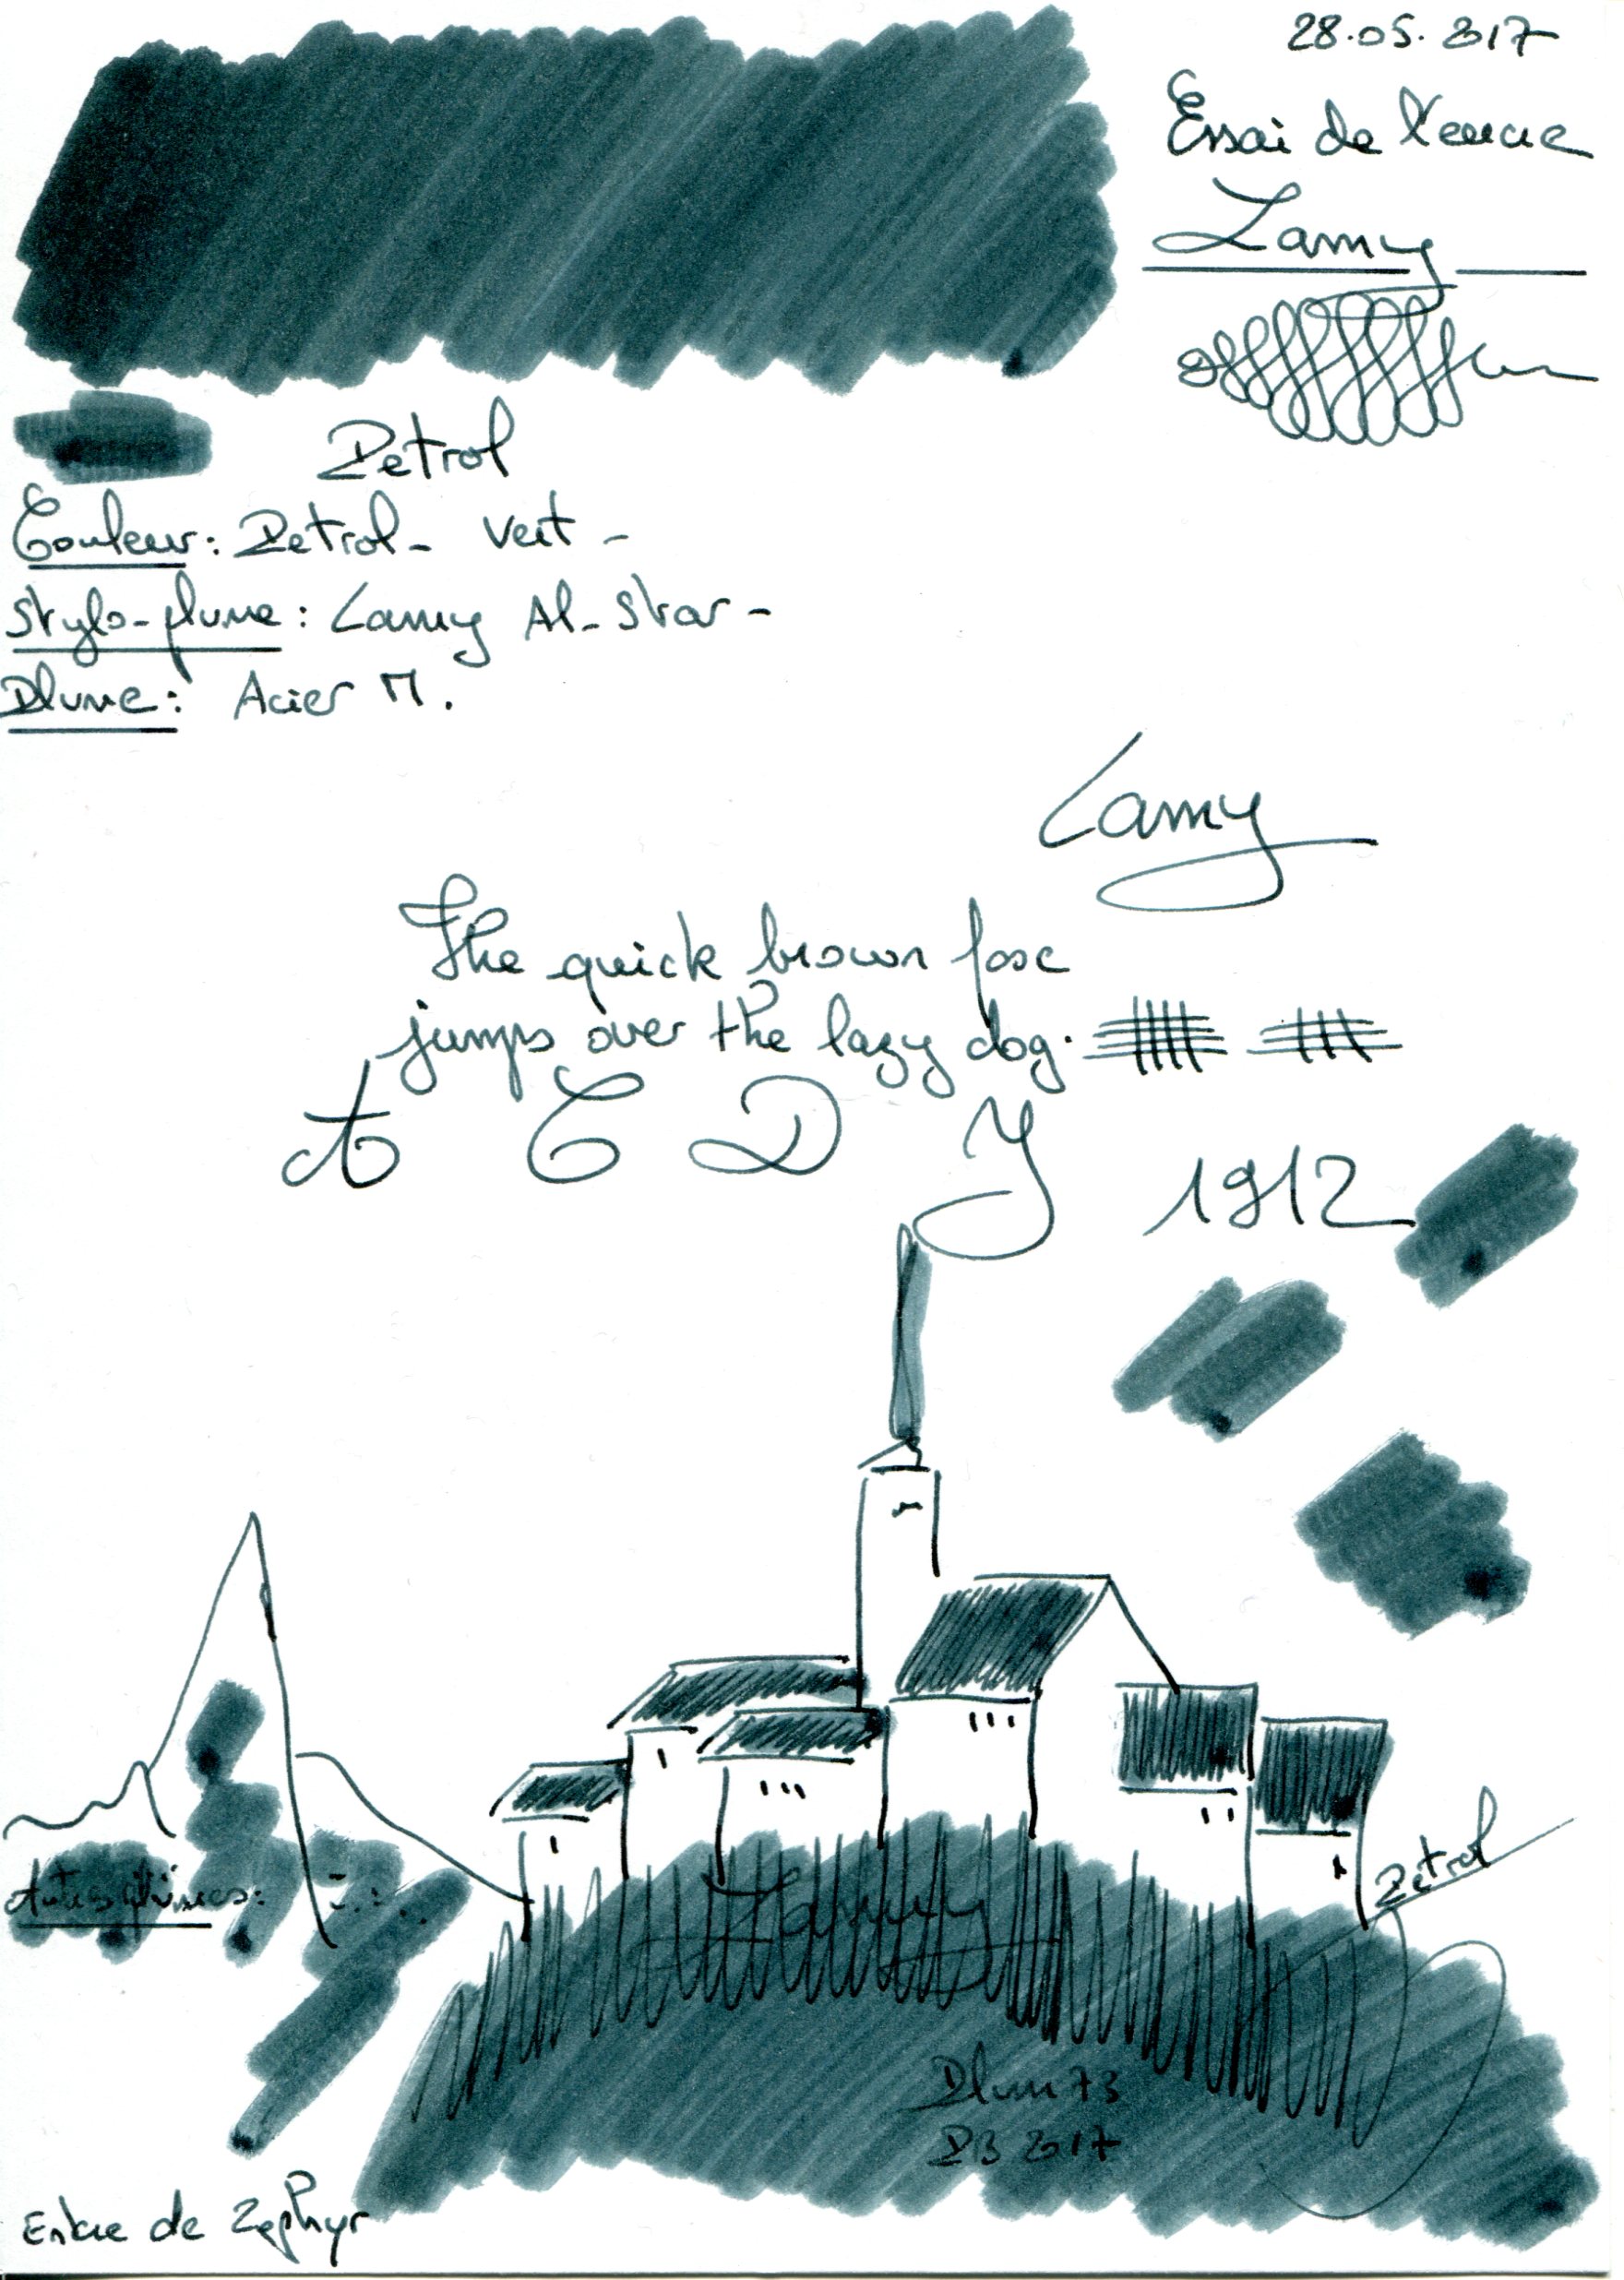 28.05.2017
Essai de l'encre
Lamy
Petrol
Couleur: Petrol - Vert -
Stylo-plume: Lamy Al-Star -
Plume: Acier M.
Lamy
The quick brown fox
jumps over the lazy dog.
A C D Y
1912
Petrol
Autres
Lamy
Plum73
PB 2017
de Zephyr